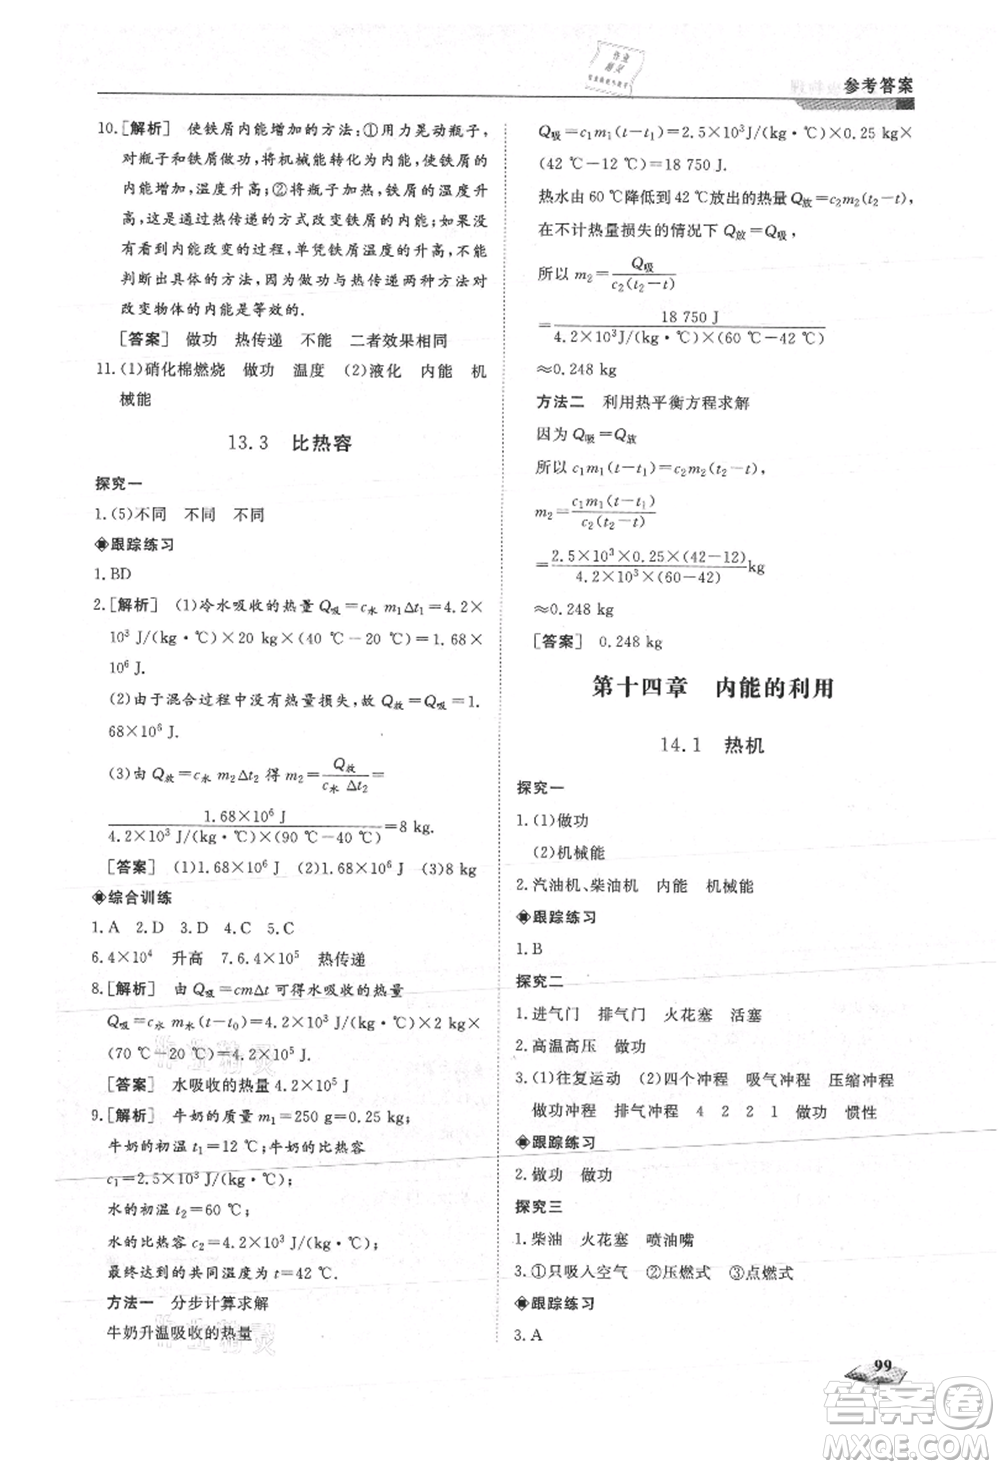 参考答案
10.[解析] 使铁屑内能增加的方法:①用力晃动瓶子,
对瓶子和铁屑做功,将机械能转化为内能,使铁屑的
内能增大,温度升高;②将瓶子加热,铁屑的温度升
高,这是通过热传递的方式改变铁屑的内能;如果没
有看到内能改变的过程,单凭铁屑温度的升高,不能
判断出具体的方法,因为做功与热传递两种方法对
改变物体的内能是等效的.
[答案] 做功 热传递 不能 二者效果相同
11.(1)硝化棉燃烧 做功 温度 (2)液化 内能 机
械能
13.3 比热容
探究一
1.(5)不同 不同 不同
◈跟踪练习
1.BD
2.[解析] (1)冷水吸收的热量 Q吸=c水 m₁Δt₁=4.2×
10³ J/(kg·℃)×20 kg×(40 ℃-20 ℃)=1.68×
10⁶ J.
(2)由于混合过程中没有热量损失,故 Q放=Q吸=1.
68×10⁶ J.
(3)由 Q放=c水 m₂Δt₂ 得 m₂=Q放/(c水 Δt₂)=
1.68×10⁶ J/(4.2×10³ J/(kg·℃)×(90 ℃-40 ℃))=8 kg.
[答案] (1)1.68×10⁶ J (2)1.68×10⁶ J (3)8 kg
◈综合训练
1.A 2.D 3.D 4.C 5.C
6.4×10⁴ 升高 7.6.4×10⁵ 热传递
8.[解析] 由 Q吸=cmΔt 可得水吸收的热量
Q吸=c水 m水(t-t₀)=4.2×10³ J/(kg·℃)×2 kg×
(70 ℃-20 ℃)=4.2×10⁵ J.
[答案] 水吸收的热量 4.2×10⁵ J
9.[解析] 牛奶的质量 m₁=250 g=0.25 kg,
牛奶的初温 t₁=12 ℃,牛奶的比热容
c₁=2.5×10³ J/(kg·℃);
水的初温 t₂=60 ℃,
水的比热容 c₂=4.2×10³ J/(kg·℃);
最终达到的共同温度为 t=42 ℃.
方法一 分步计算求解
牛奶升温吸收的热量
Q吸=c₁m₁(t-t₁)=2.5×10³J/(kg·℃)×0.25 kg×
(42 ℃-12 ℃)=18 750 J.
热水由 60 ℃降低到 42 ℃放出的热量 Q放=c₂m₂(t₂-t)
在不计热量损失的情况下 Q放=Q吸,
所以 m₂=Q吸/(c₂(t₂-t))
=18 750 J/(4.2×10³ J/(kg·℃)×(60 ℃-42 ℃))
≈0.248 kg
方法二 利用热平衡方程求解
因为 Q吸=Q放
所以 c₁m₁(t-t₁)=c₂m₂(t₂-t),
m₂=c₁m₁(t-t₁)/(c₂(t₂-t))
=2.5×10³×0.25×(42-12)/(4.2×10³×(60-42)) kg
≈0.248 kg
[答案] 0.248 kg
第十四章 内能的利用
14.1 热机
探究一
1.(1)做功
(2)机械能
2.汽油机、柴油机 内能 机械能
◈跟踪练习
1.B
探究二
1.进气门 排气门 火花塞 活塞
2.高温高压 做功
3.(1)往复运动 (2)四个冲程 吸气冲程 压缩冲程
做功冲程 排气冲程 4 2 2 1 做功 惯性
◈跟踪练习
2.做功 做功
探究三
1.柴油 火花塞 喷油嘴
3.①只吸入空气 ②压燃式 ③点燃式
◈跟踪练习
3.A
99
答案圈
MXQE.COM